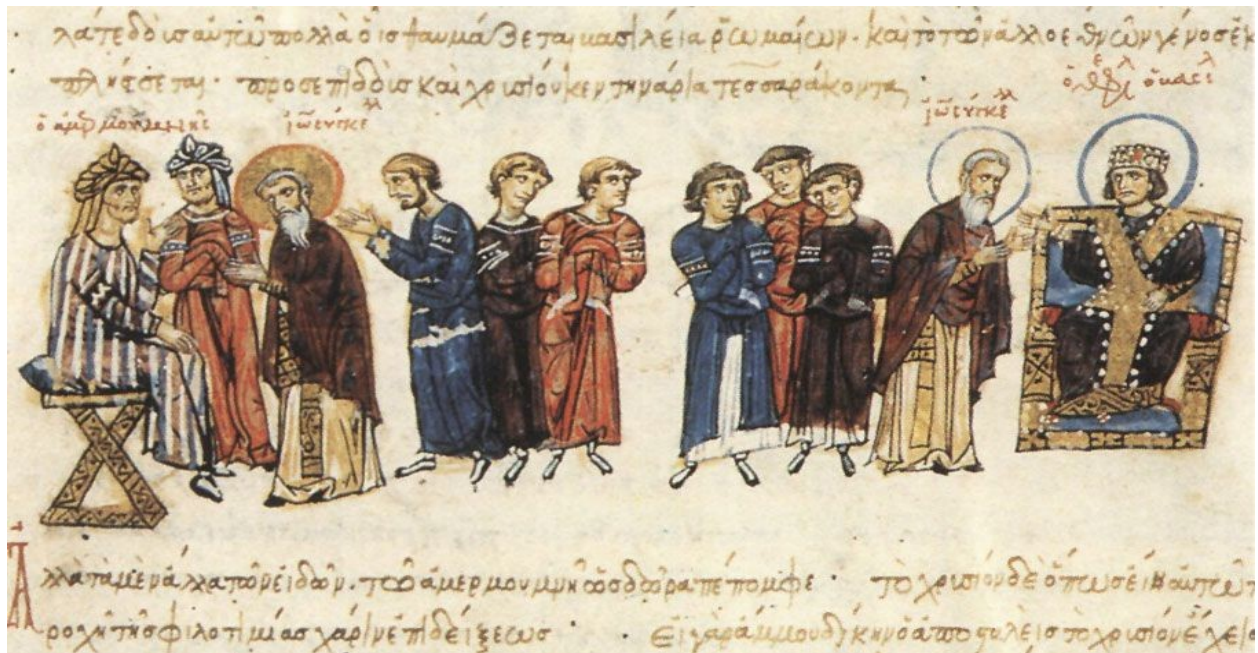 λατε δοὺς αὐτῶ πολλὰ οἷς θαυμάζεται βασιλεία ῥωμαίων. καὶ τὸ τῶν ἄλλο ἐθνῶν γένος ἐκ
πλήσσεται. προσεπιδοὺς καὶ χρυσίου κεντηνάρια τεσσαράκοντα
ὁ ἀμερμουμνῆς ἰω σύγκελλ ἰω σύγκελλ ὁ θεόφιλ ὁ βασιλ
Ἀλλὰ τὰ μὲν ἄλλα τῶν εἰδῶν. τῶ ἀμερμουμνῆ ὡς δῶρα πέπομφε. τὸ χρυσίον δὲ ὅπως εἴη αὐτῶ
ροχὴ τῆς φιλοτιμίας χάριν ἐπιδείξεως. Εἰ γὰρ ἄμμου δίκην ὁ ἀποσυλεὶς τὸ χρυσίον